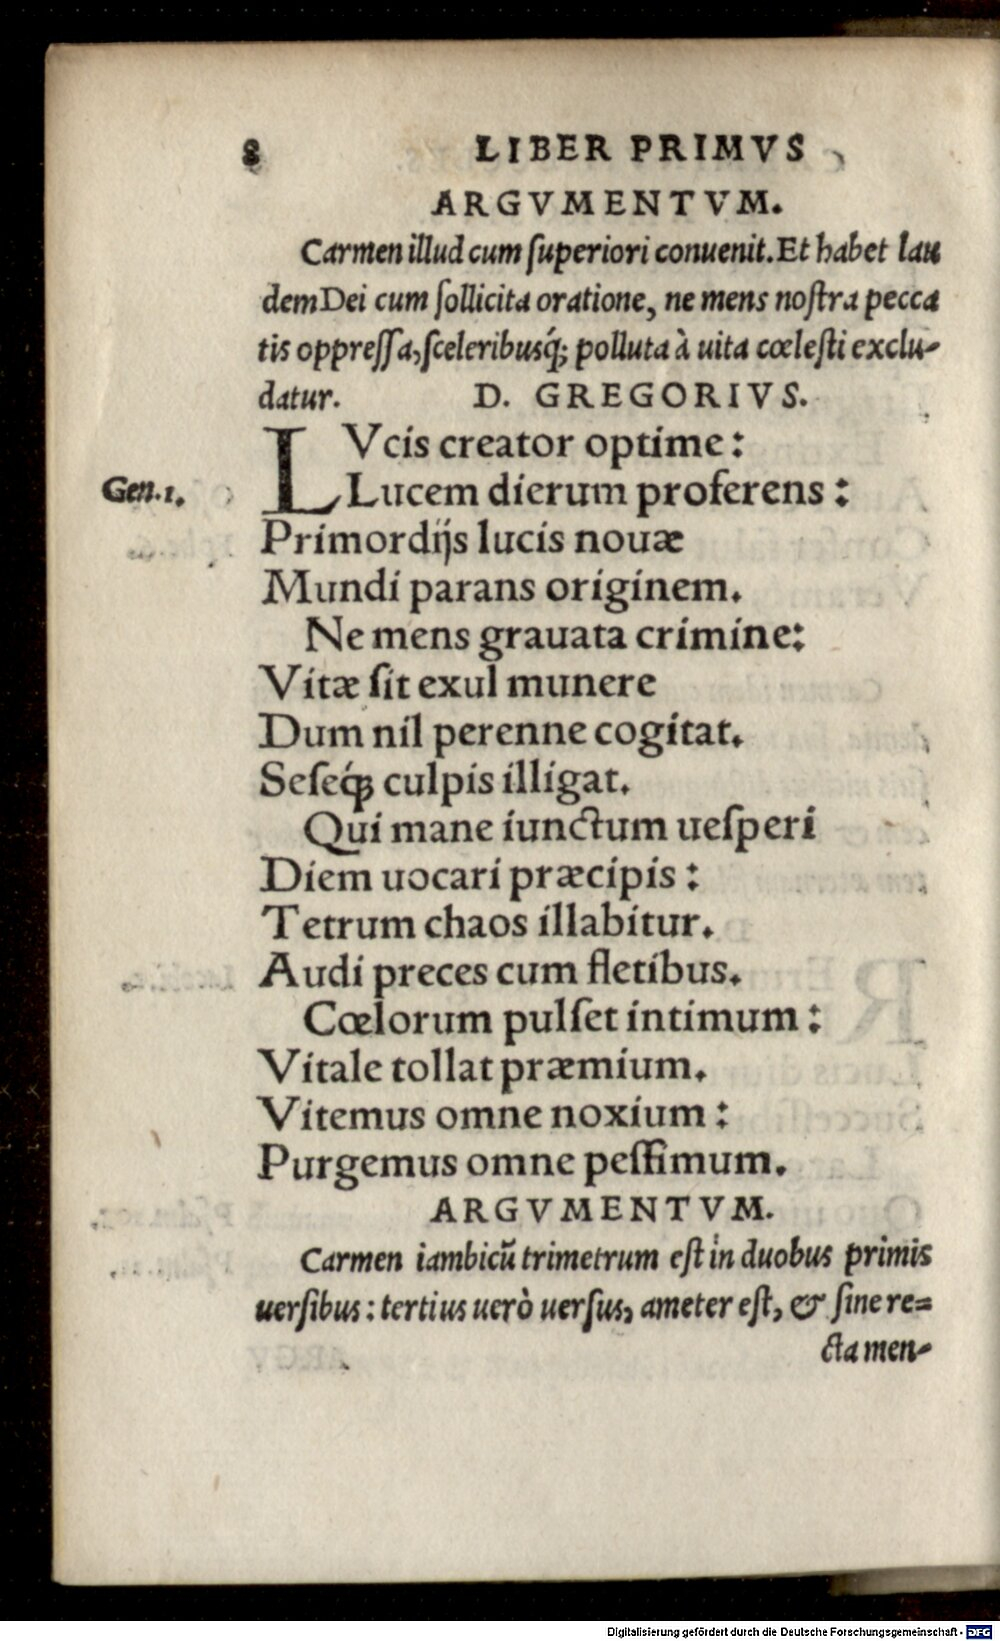 8 LIBER PRIMVS
ARGVMENTVM.
Carmen illud cum ſuperiori conuenit. Et habet lau
dem Dei cum ſollicita oratione, ne mens noſtra pecca
tis oppreſſa, ſceleribusq́; polluta à uita cœleſti exclu-
datur. D. GREGORIVS.
LVcis creator optime:
Gen.1. Lucem dierum proferens:
Primordijs lucis nouæ
Mundi parans originem.
Ne mens grauata crimine:
Vitæ ſit exul munere
Dum nil perenne cogitat.
Seſeq́ꝫ culpis illigat.
Qui mane iunctum ueſperi
Diem uocari præcipis:
Tetrum chaos illabitur.
Audi preces cum fletibus.
Cœlorum pulſet intimum:
Vitale tollat præmium.
Vitemus omne noxium:
Purgemus omne peſſimum.
ARGVMENTVM.
Carmen iambicũ trimetrum eſt in duobus primis
uerſibus: tertius uerò uerſus, ameter eſt, & ſine re=
cta men-
Digitalisierung gefördert durch die Deutsche Forschungsgemeinschaft - DFG